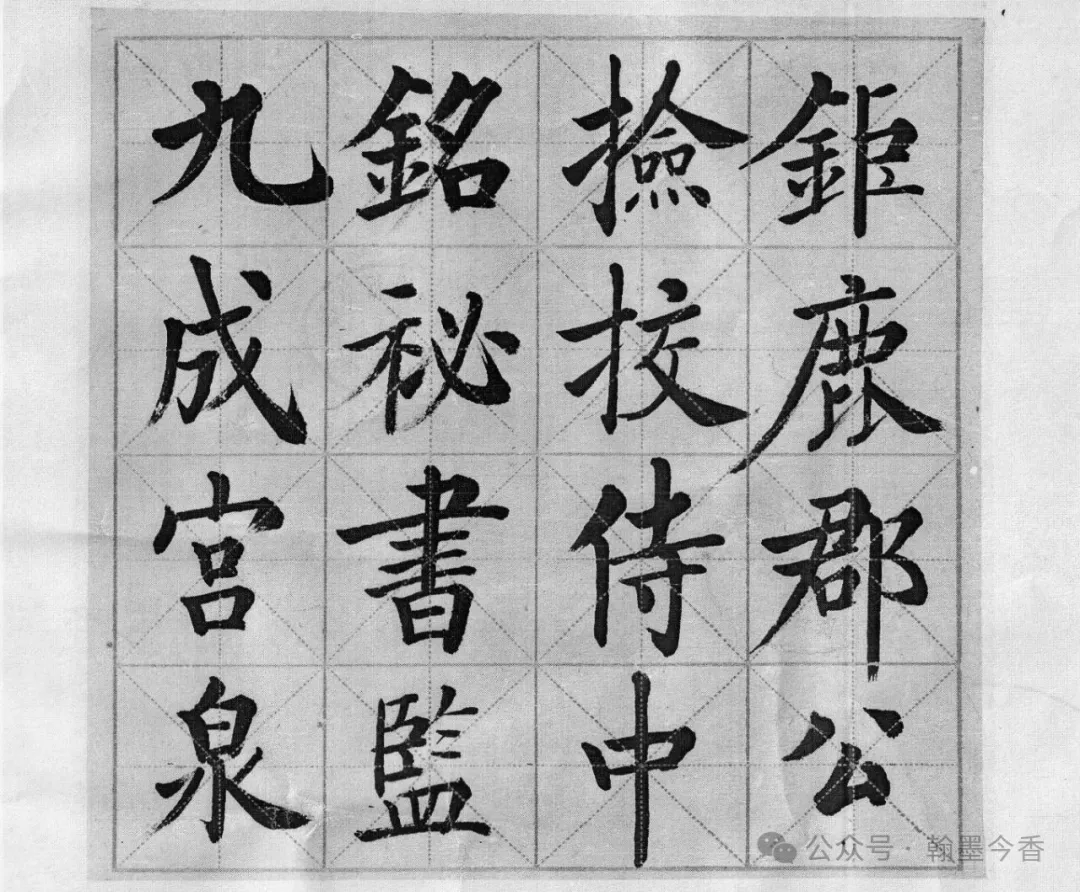 九成宮泉
銘祕書監
撿挍侍中
鉅鹿郡公
公众号·翰墨今香